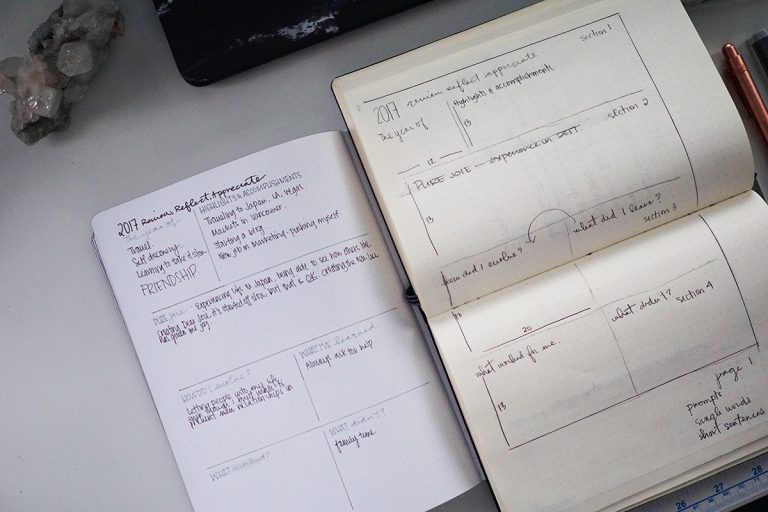 2017 Review, Reflect, Appreciate
The year of
Travel
Self discovery
Learning to take it slow
FRIENDSHIP
HIGHLIGHTS & ACCOMPLISHMENTS
Traveling to Japan, LA, Vegas.
Markets in Vancouver
Starting a blog
New job in Marketing - pushing myself
PURE Joie: Experiencing life in Japan, being able to see how others live
Creating Dear Joie, it's started of slow, but that is OK. Creating the
has given me joy
HOW DID I evolve?
Letting people into my life
even though I
new relationships in
WHAT I'VE learned
Always ask for help.
WHAT worked?
WHAT didn't?
family time.
2017 review reflect appreciate
section 1
The year of
Highlights & accomplishments
13
12
section 2
PURE JOIE — experience in 2017
13
how did I evolve?
what did I learn?
section 3
20
what worked for me.
what didn't? section 4
13
page 1
prompts
single words
short sentences
26 27 28